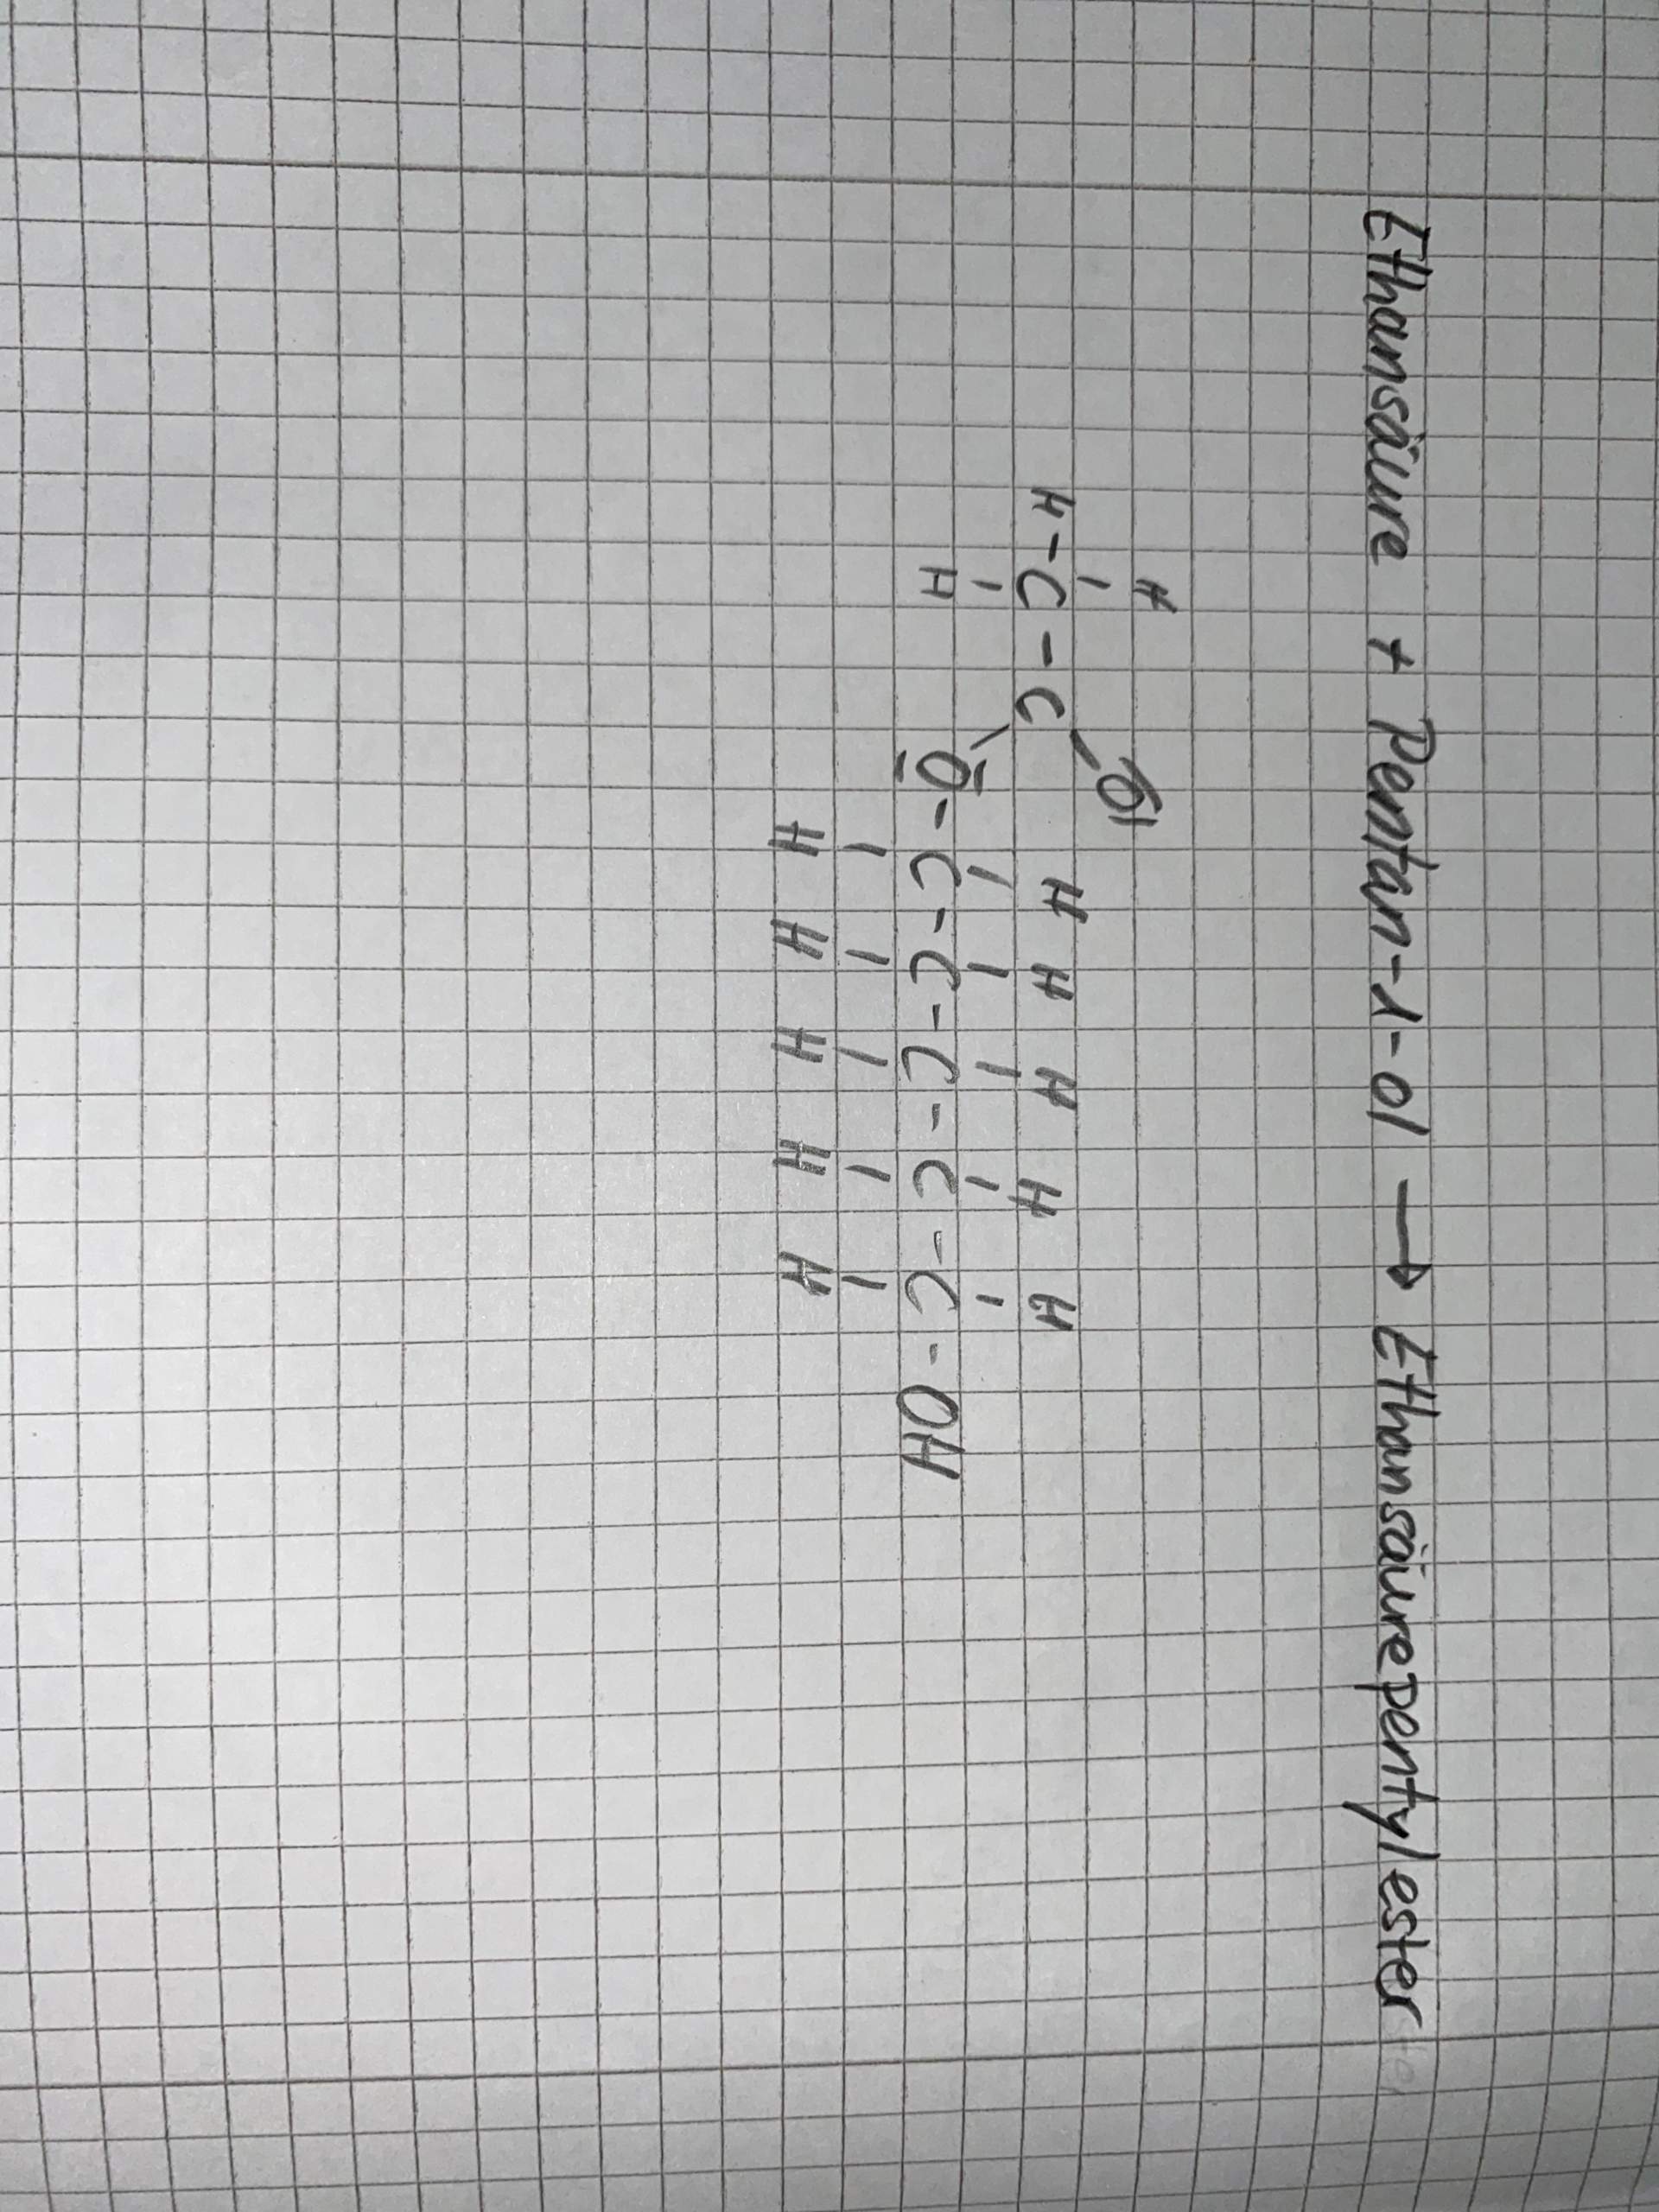 Ethansäure + Pentan-1-ol → Ethansäurepentylester
H |O|
H-C-C H H H H H
H O-C-C-C-C-C-OH
H H H H H